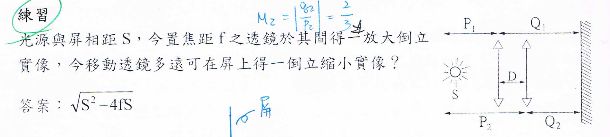 練習
M₂ = |q₂/p₂| = 2/3
光源與屏相距 S，今置焦距 f 之透鏡於其間得一放大倒立
實像，今移動透鏡多遠可在屏上得一倒立縮小實像？
答案：√S²−4fS
屏
P₁ Q₁
D
S
P₂ Q₂